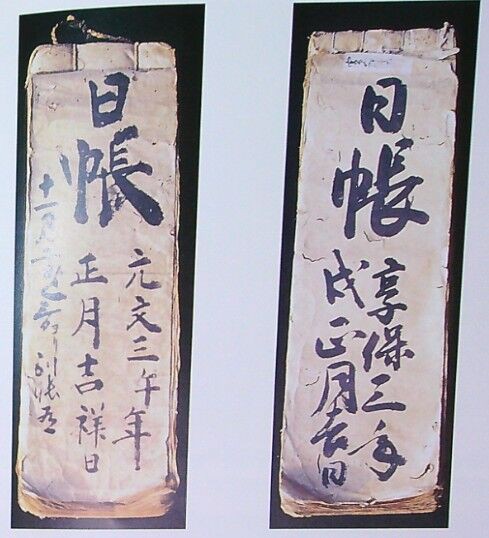 日帳
元文三午年
正月吉祥日
十一月
日帳
享保三年
戌正月吉日